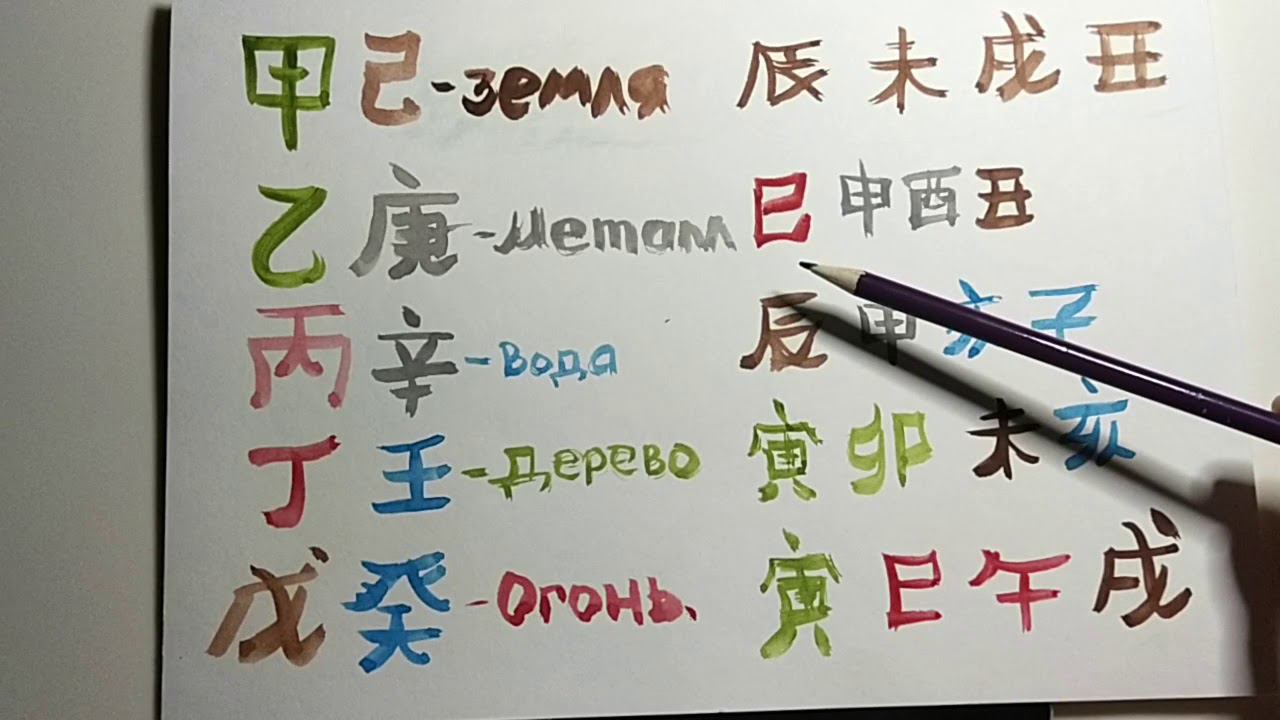 甲己-земля 辰未戌丑
乙庚-метал 巳申酉丑
丙辛-вода 辰申亥子
丁壬-дерево 寅卯未亥
戊癸-Огонь. 寅巳午戌